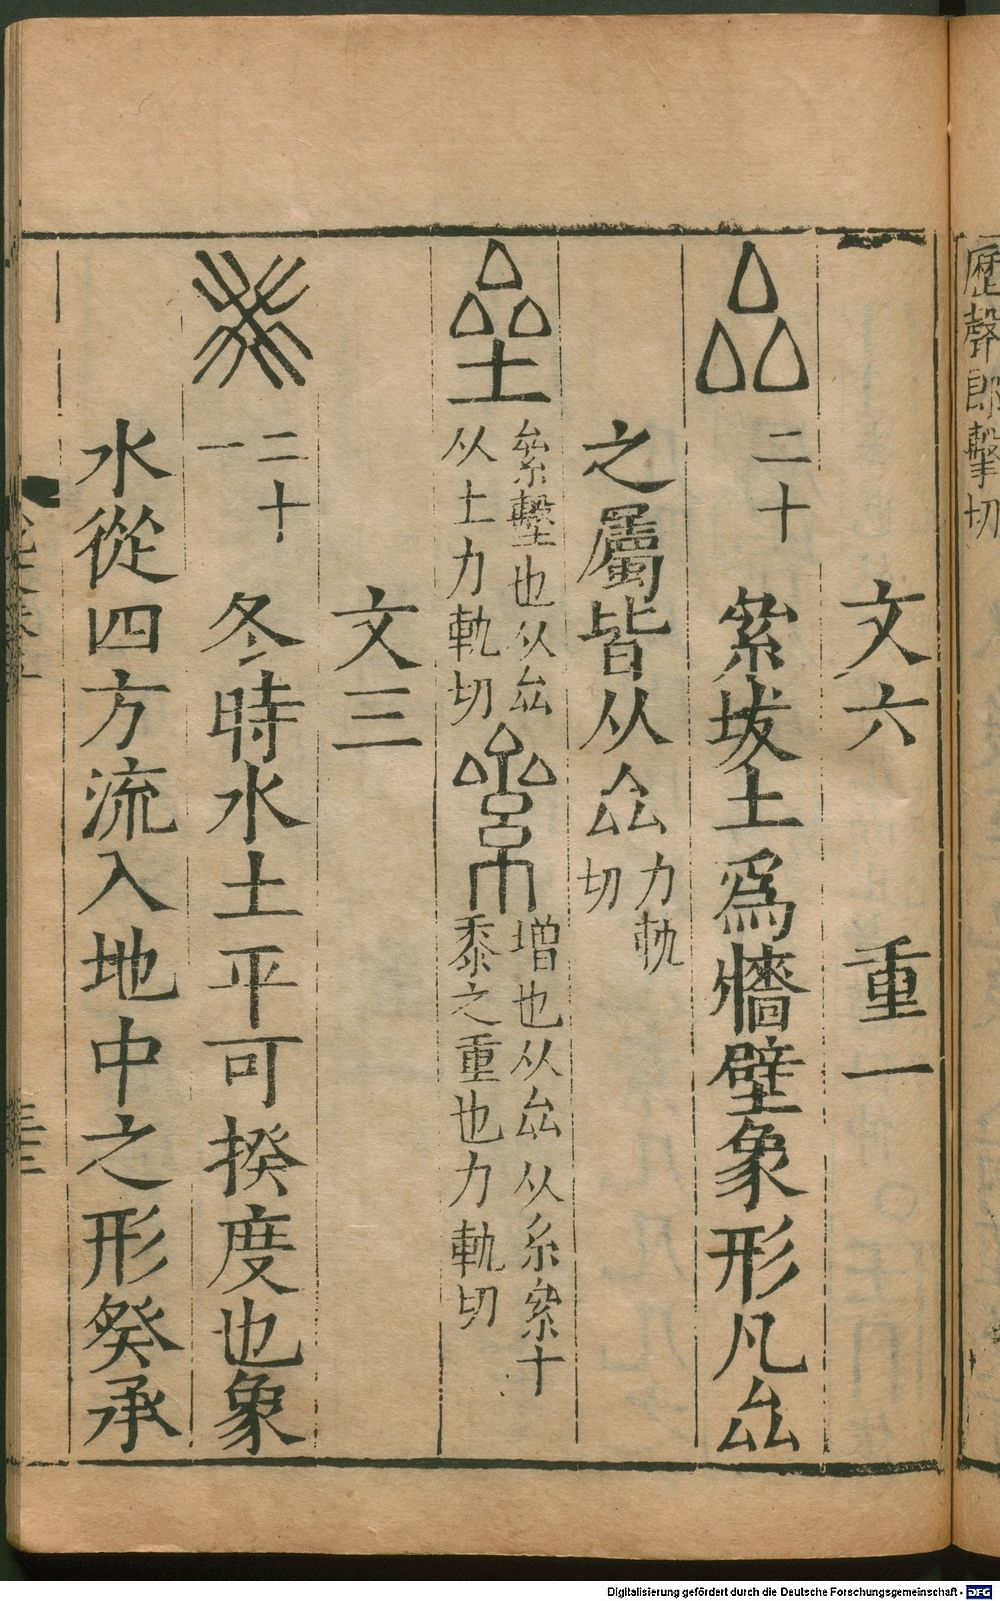 歷聲郎擊切
文六 重一
厽 二十 絫坺土爲牆壁象形凡厽
之屬皆从厽 力軌切
垒 絫墼也从厽从土力軌切 絫 增也从厽从糸絫十黍之重也力軌切
文三
癸 二十一 冬時水土平可揆度也象
水從四方流入地中之形癸承
Digitalisierung gefördert durch die Deutsche Forschungsgemeinschaft - DFG